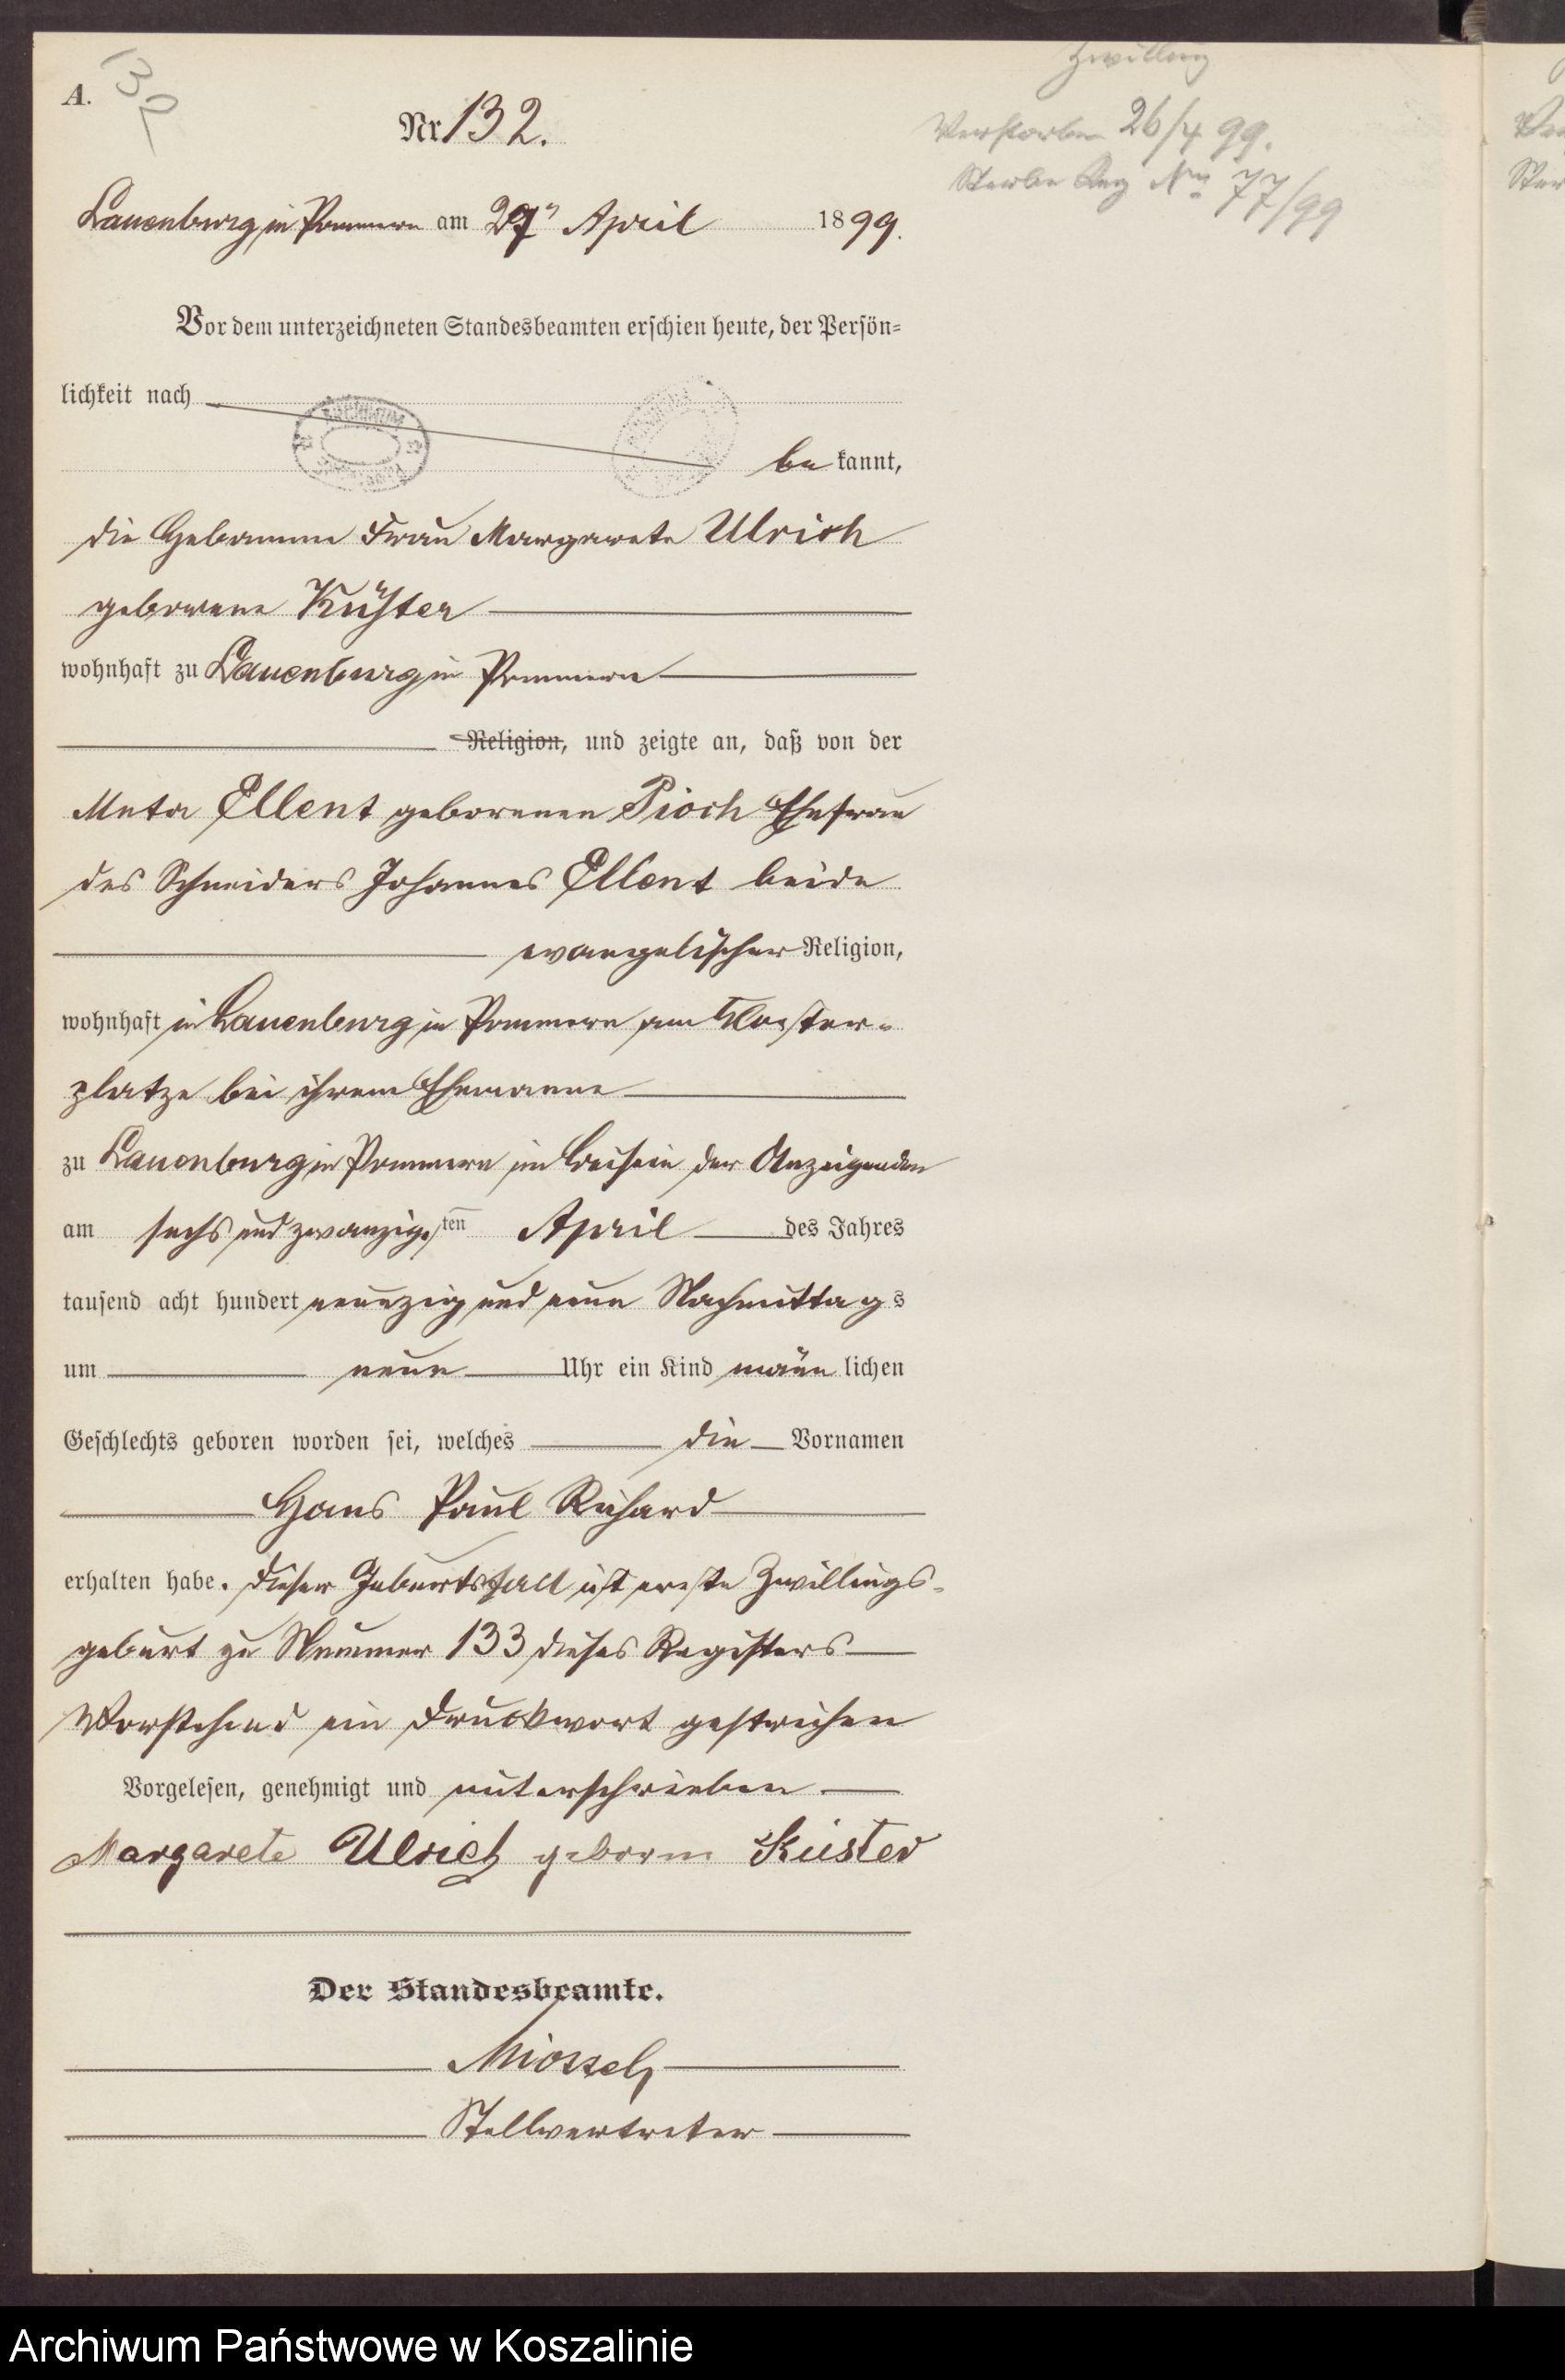 A.
132
Nr 132.
Zwilling
Verstorben 26/4 99.
Sterbe Reg Nr 77/99
Lauenburg in Pommern am 27n April 1899.
Vor dem unterzeichneten Standesbeamten erschien heute, der Persön=
lichkeit nach
be kannt,
die Hebamme Frau Margarete Ulrich
geborene Küster
wohnhaft zu Lauenburg in Pommern
Religion, und zeigte an, daß von der
Meta Ellent geborenen Pioch Ehefrau
des Schneiders Johannes Ellent beide
evangelischer Religion,
wohnhaft in Lauenburg in Pommern am Kloster-
platze bei ihrem Ehemanne
zu Lauenburg in Pommern im Beisein der Anzeigenden
am sechs und zwanzigsten April des Jahres
tausend acht hundert neunzig und neun Nachmittags
um neun Uhr ein Kind männlichen
Geschlechts geboren worden sei, welches die Vornamen
Hans Paul Richard
erhalten habe. Dieser Geburtsfall ist erste Zwillings-
geburt zu Nummer 133 dieses Registers
Vorstehend ein Druckwort gestrichen
Vorgelesen, genehmigt und unterschrieben
Margarete Ulrich geborne Küster
Der Standesbeamte.
Stellvertreter
Archiwum Państwowe w Koszalinie